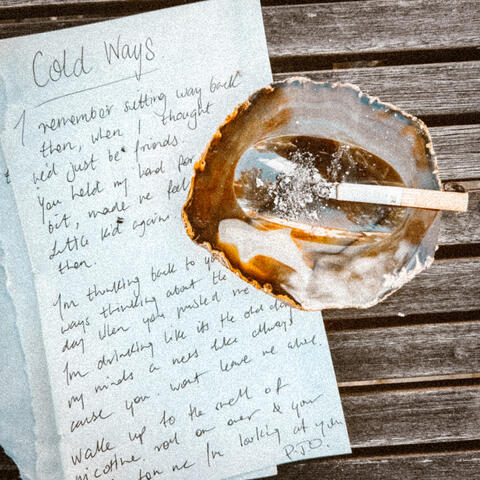 Cold Ways
I remember sitting way back
then, when I thought
we'd just be friends.
You held my hand for
but, made me feel
little kid again
then.
I'm thinking back to
ways thinking about the
day when you pushed me
I'm drinking like its the old day
my minds a mess like always
cause you wont leave me alone.
Wake up to the smell of
nicotine. roll on over & your
on me I'm looking at you
P.J.O.